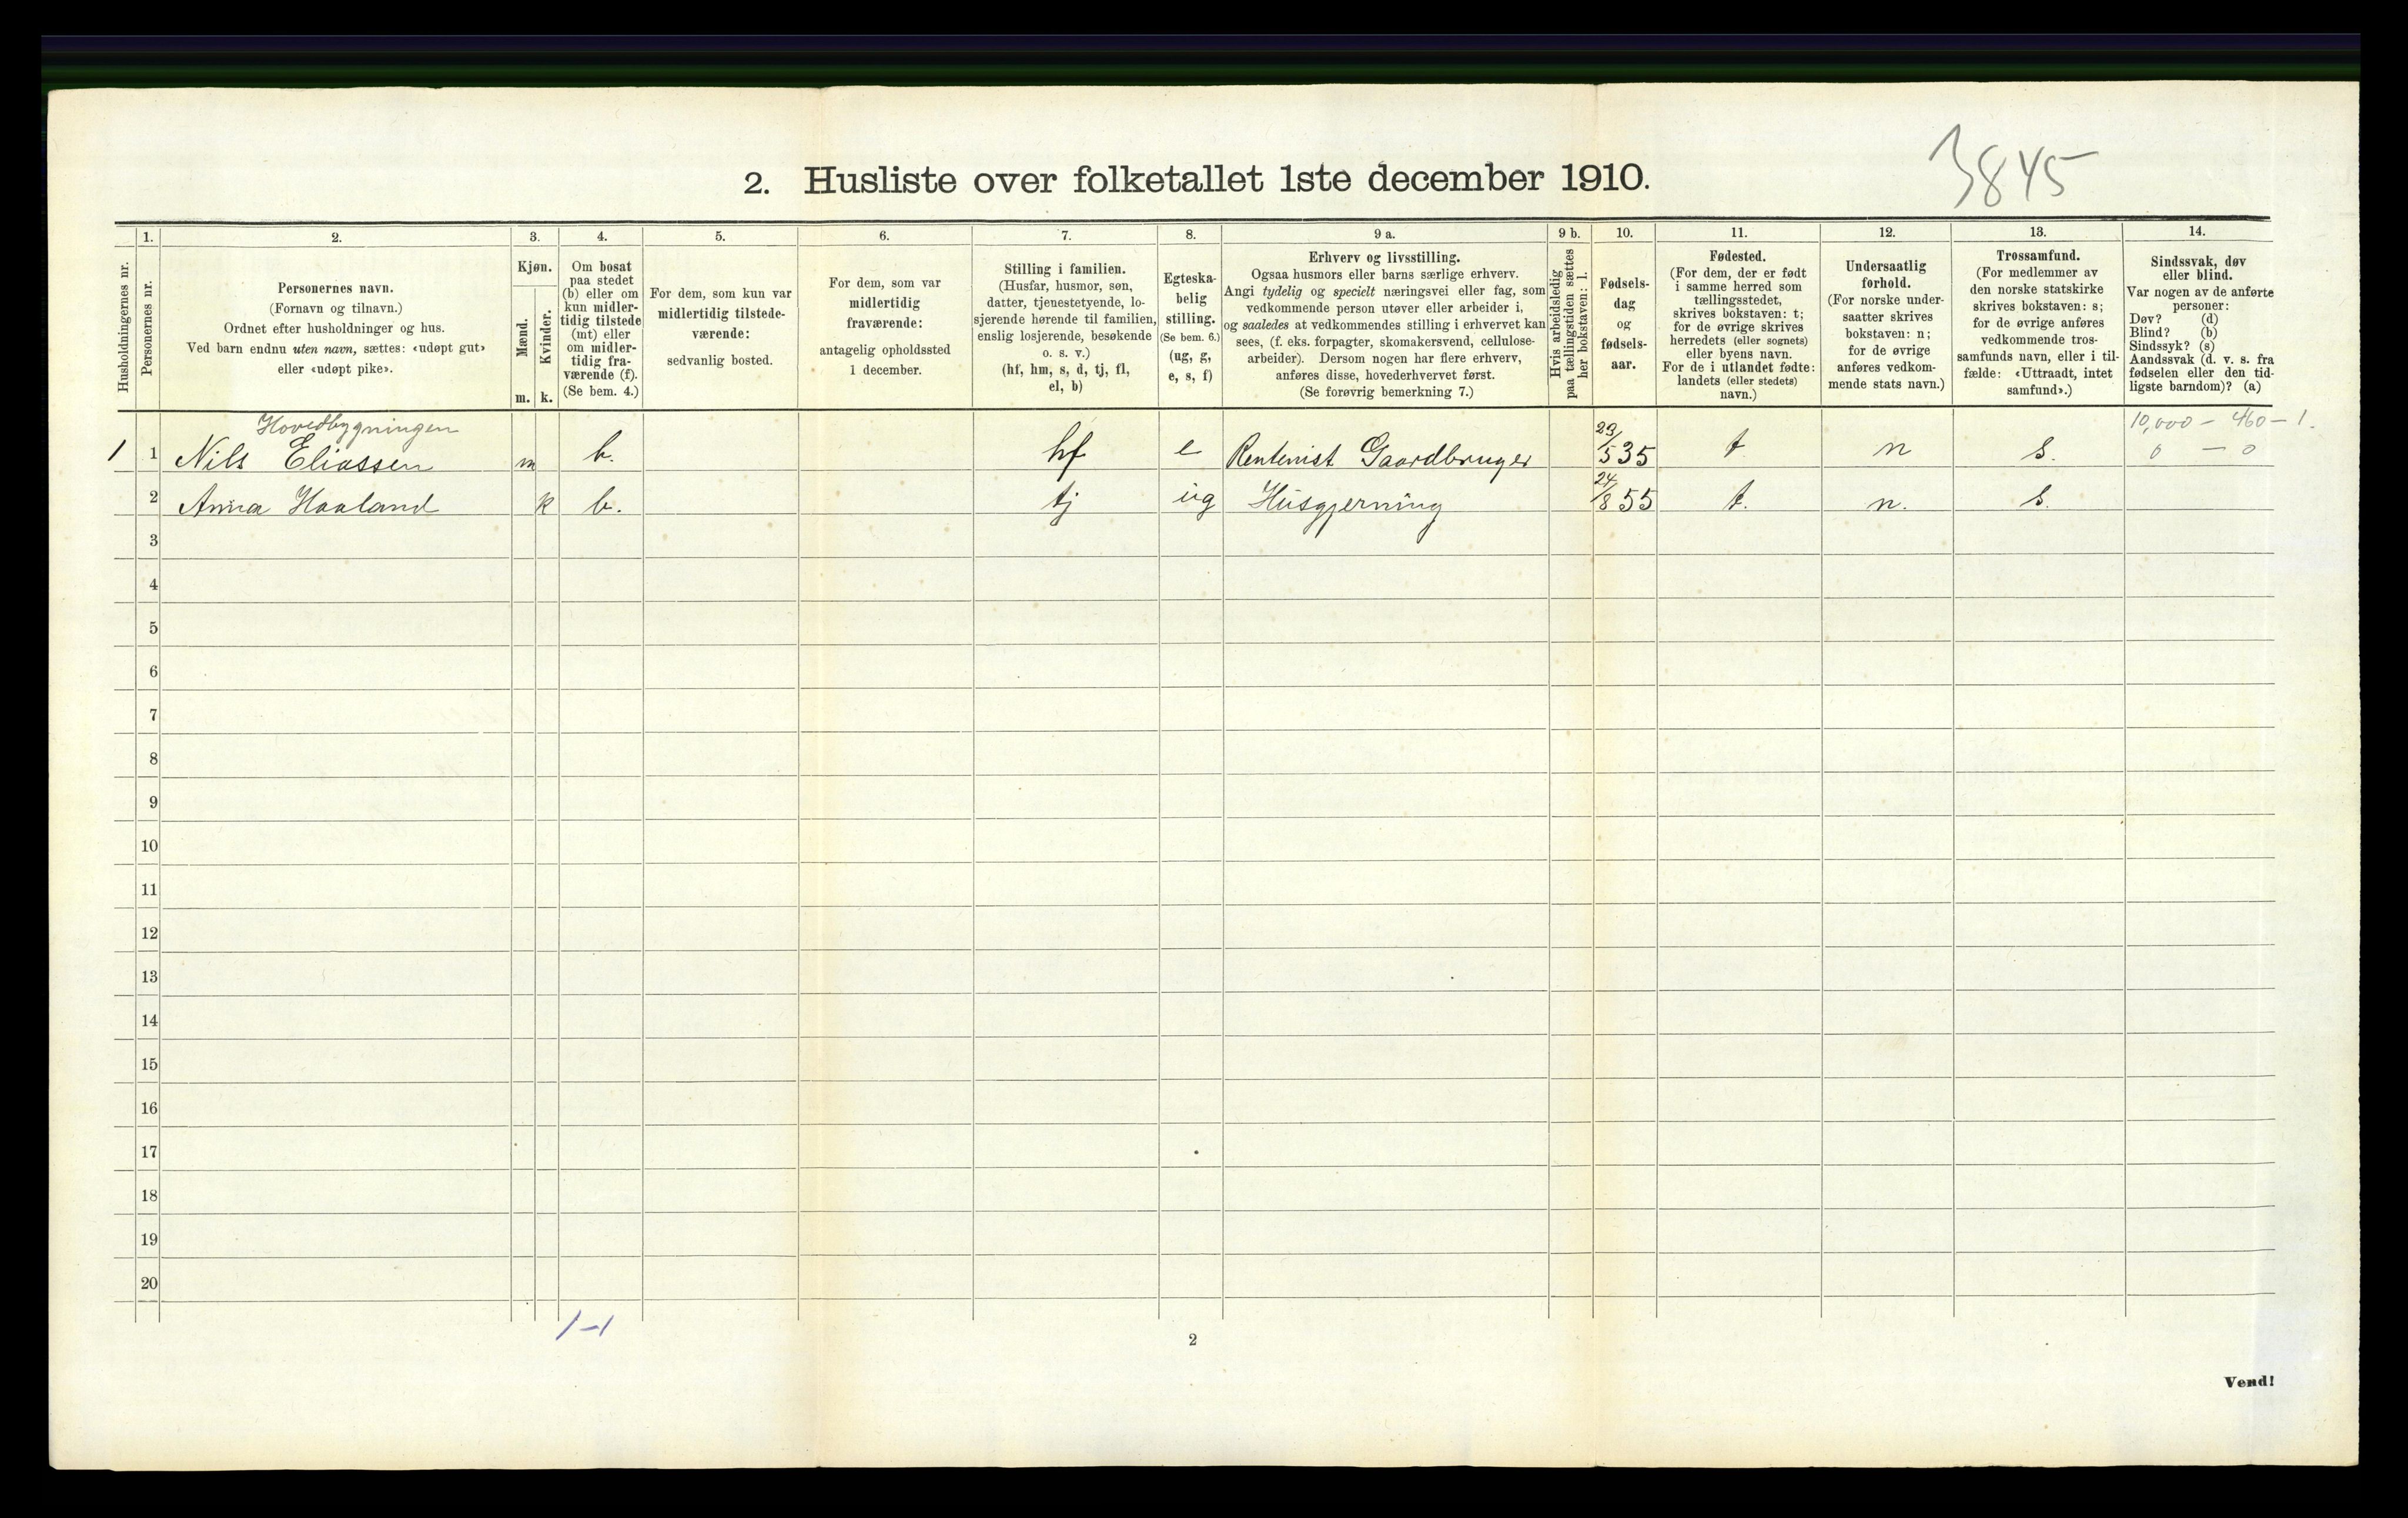 3845
2. Husliste over folketallet 1ste december 1910.
1. 2. 3. 4. 5. 6. 7. 8. 9 a. 9 b. 10. 11. 12. 13. 14.
Husholdningernes nr.
Personernes nr.
Personernes navn.
(Fornavn og tilnavn.)
Ordnet efter husholdninger og hus.
Ved barn endnu uten navn, sættes: «udøpt gut»
eller «udøpt pike».
Kjøn.
Mænd.
Kvinder.
m. k.
Om bosat
paa stedet
(b) eller om
kun midler-
tidig tilstede
(mt) eller
om midler-
tidig fra-
værende (f).
(Se bem. 4.)
For dem, som kun var
midlertidig tilstede-
værende:
sedvanlig bosted.
For dem, som var
midlertidig
fraværende:
antagelig opholdssted
1 december.
Stilling i familien.
(Husfar, husmor, søn,
datter, tjenestetyende, lo-
sjerende hørende til familien,
enslig losjerende, besøkende
o. s. v.)
(hf, hm, s, d, tj, fl,
el, b)
Egteska-
belig
stilling.
(Se bem. 6.)
(ug, g,
e, s, f)
Erhverv og livsstilling.
Ogsaa husmors eller barns særlige erhverv.
Angi tydelig og specielt næringsvei eller fag, som
vedkommende person utøver eller arbeider i,
og saaledes at vedkommendes stilling i erhvervet kan
sees, (f. eks. forpagter, skomakersvend, cellulose-
arbeider). Dersom nogen har flere erhverv,
anføres disse, hovederhvervet først.
(Se forøvrig bemerkning 7.)
Hvis arbeidsledig
paa tællingstiden sættes
her bokstaven: l.
Fødsels-
dag
og
fødsels-
aar.
Fødested.
(For dem, der er født
i samme herred som
tællingsstedet,
skrives bokstaven: t;
for de øvrige skrives
herredets (eller sognets)
eller byens navn.
For de i utlandet fødte:
landets (eller stedets)
navn.)
Undersaatlig
forhold.
(For norske under-
saatter skrives
bokstaven: n;
for de øvrige
anføres vedkom-
mende stats navn.)
Trossamfund.
(For medlemmer av
den norske statskirke
skrives bokstaven: s;
for de øvrige anføres
vedkommende tros-
samfunds navn, eller i til-
fælde: «Uttraadt, intet
samfund».)
Sindssvak, døv
eller blind.
Var nogen av de anførte
personer:
Døv? (d)
Blind? (b)
Sindssyk? (s)
Aandssvak (d. v. s. fra
fødselen eller den tid-
ligste barndom)? (a)
Hovedbygningen 10,000 - 460 - 1.
1 1 Nils Eliassen m b. hf e Rentenist Gaardbruger 29/5 35 t n s. 0 - 0
2 Anna Haaland k b. tj ug Husgjerning 24/8 55 t. n. s.
3
4
5
6
7
8
9
10
11
12
13
14
15
16
17
18
19
20
1-1
2
Vend!